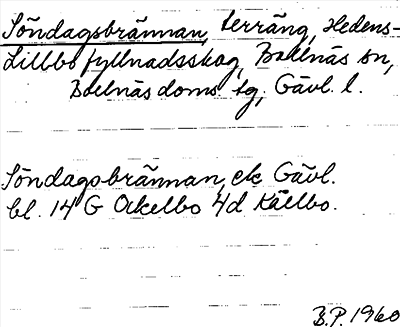 Söndagsbrännan, terräng, Hedens-
Lillbo fyllnadsskog, Bollnäs sn,
Bollnäs doms tg, Gävl. l.
Söndagsbrännan, ek Gävl.
bl. 14 G Ockelbo 4d Källbo.
B.P. 1960